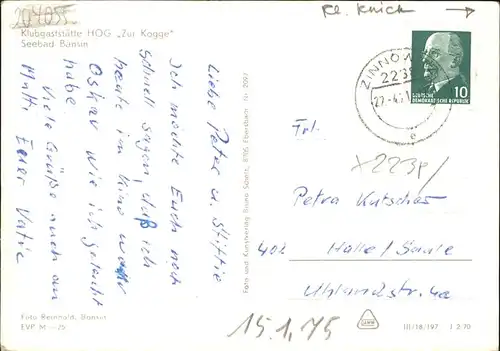 204055
Kl. Knick →
Klubgaststätte HOG „Zur Kogge"
Seebad Bansin
Liebe Petra u. Stiftie
Ich möchte Euch noch
schnell sagen, daß ich
heute im Kino war
Oskar wie ich gelacht
habe.
Viele Grüße auch an
Mutti Euer Vatie
Foto Reinhold, Bansin
EVP M –.25
Foto und Kunstverlag Bruno Scholz, 8705 Ebersbach Nr. 2097
ZINNOW
2238
10
DEUTSCHE
DEMOKRATISCHE REPUBLIK
c
Frl.
x2238/
Petra Kutschas
402 Halle/Saale
Uhlandstr. 4a
15.1.75
III/18/197 J 2 70